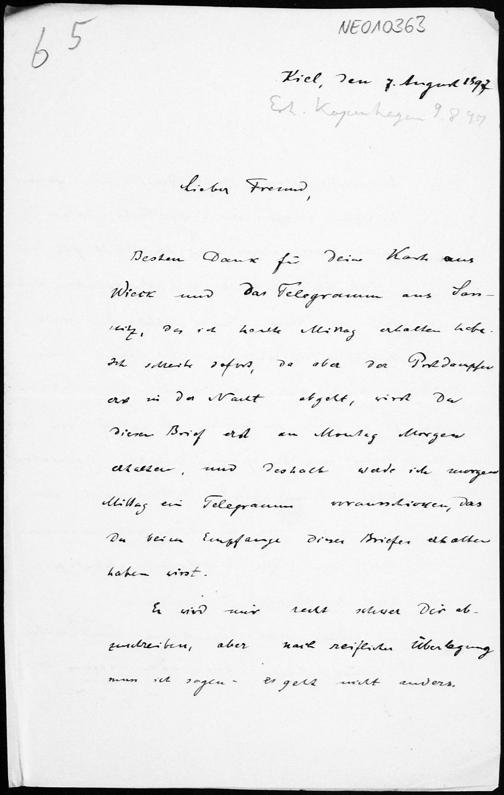 65
NE010363
Kiel, den 7. August 1897
Erh. Kopenhagen 9.8.97
Lieber Freund,
Besten Dank für Deine Karte aus
Wieck und das Telegramm aus Sass-
nitz, das ich heute Mittag erhalten habe.
Ich schreibe sofort, da aber der Postdampfer
erst in der Nacht abgeht, wirst Du
diesen Brief erst am Montag Morgen
erhalten, und deshalb werde ich morgen
Mittag ein Telegramm vorausschicken, das
Du beim Empfange dieses Briefes erhalten
haben wirst.
Es wird mir recht schwer Dir ab-
zuschreiben, aber nach reiflicher Überlegung
muss ich sagen - es geht nicht anders.